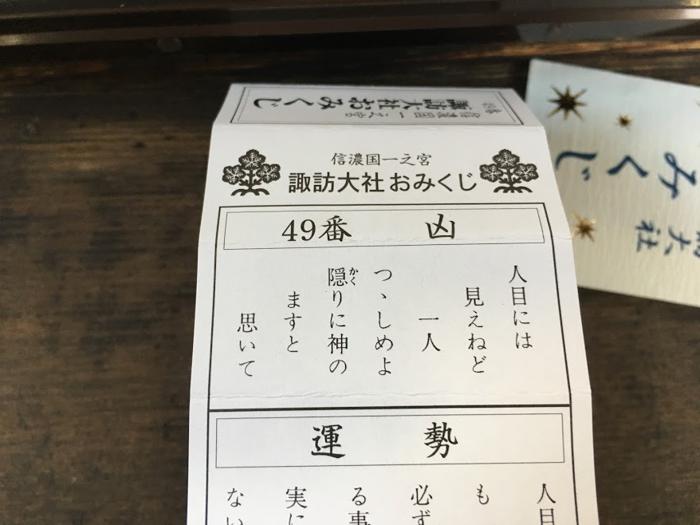 信濃国一之宮
諏訪大社おみくじ
信濃国一之宮
諏訪大社おみくじ
49番 凶
人目には
見えねど
一人
つゝしめよ
隠りに神の
かく
ますと
思いて
運勢
人目
も
必ず
る事
実に
ない
みくじ
大社